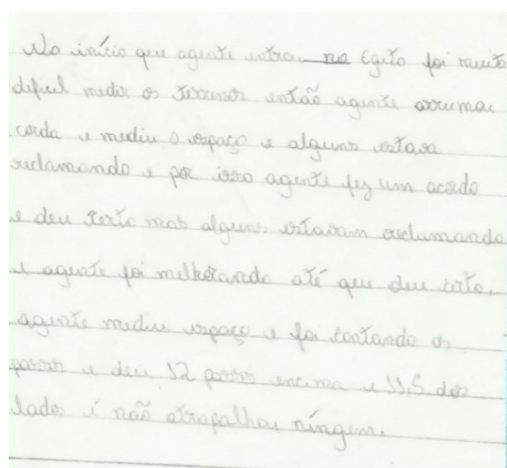 No início que agente entrou no Egito foi muito
dificil medir os terrenos então agente arrumou
corda e mediu o espaço e alguns estava
reclamando e por isso agente fez um acordo
e deu certo mas alguns estavam reclamando
e agente foi melhorando até que deu certo,
agente mediu espaço e foi contando os
passos e deu 12 passos encima e 11,5 dos
lados i não atrapalhou ningem.